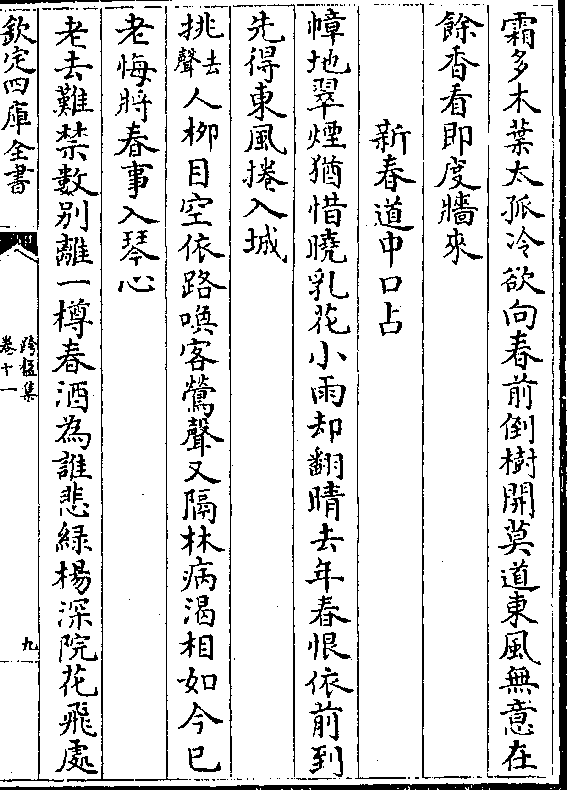 霜多木葉太孤冷欲向春前倒樹開莫道東風無意在
餘香看即度牆來
新春道中口占
幛地翠煙猶惜曉乳花小雨却翻晴去年春恨依前到
先得東風捲入城
挑去聲人栁目空依路喚客鶯聲又隔林病渴相如今已
老悔將春事入琴心
老去難禁數别離一樽春酒為誰悲緑楊深院花飛處
欽定四庫全書
跨鼇集
卷十一
九